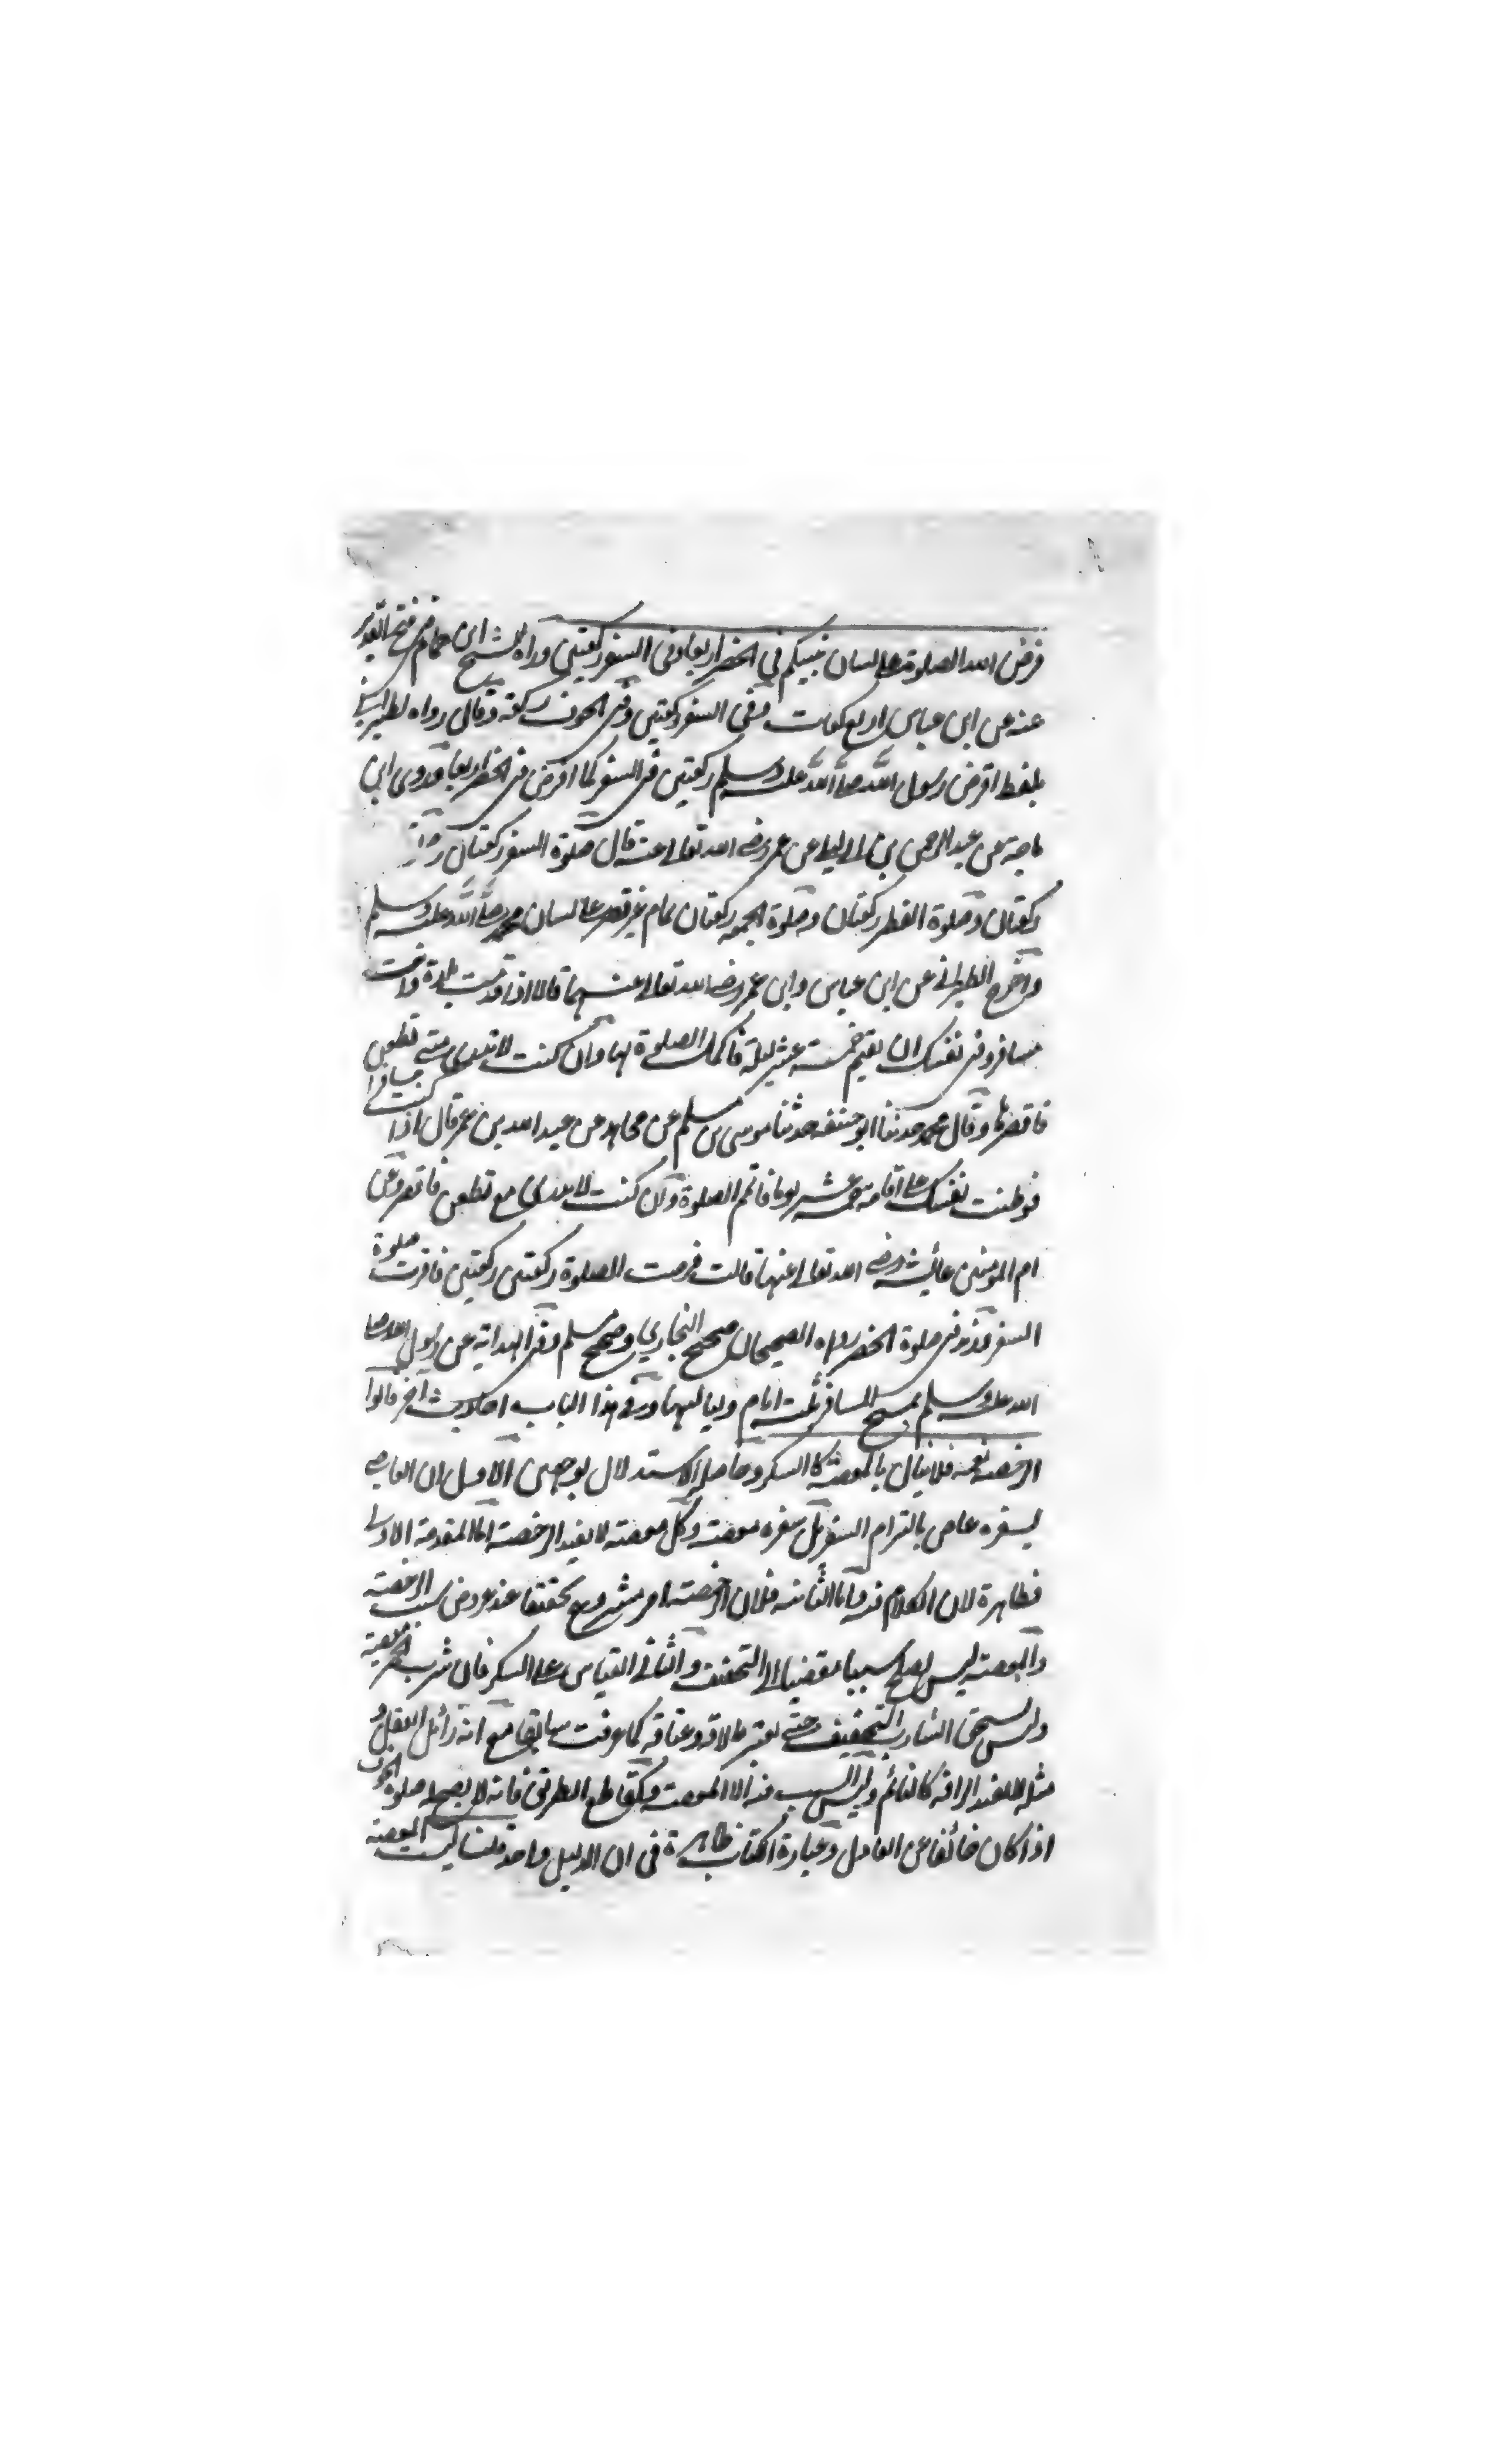 فرض الله الصلوة على لسان نبيكم في الحضر اربعا وفي السفر ركعتين رواه الشيخ ابن همام في فتح القدير
عنه عن ابن عباس اربع ركعات وفي السفر ركعتين وفي الخوف ركعة وقال رواه الطبراني
بلفظ افترض رسول الله صلى الله عليه وسلم ركعتين في السفر كما افترض في الحضر اربعا وروى ابن
ماجة عن عبد الرحمن بن ابي ليلى عن عمر رضي الله تعالى عنه قال صلوة السفر ركعتان
ركعتان وصلوة الفطر ركعتان وصلوة الجمعه ركعتان تمام غير قصر على لسان محمد صلى الله عليه وسلم
واخرج الطبراني عن ابن عباس وابن عمر رضي الله تعالى عنهما قالا اذا قدمت بلدة وانت
مسافر وفي نفسك ان تقيم خمسة عشر ليلة فاكمل الصلوة لها وان كنت لا تدري متى تظعن
فاقصرها وقال محمد حدثنا ابو حنيفه حدثنا موسى بن مسلم عن مجاهد عن عبد الله بن عمر قال اذا كنت مسافرا
فوطنت نفسك على اقامة خمسة عشر يوما فاتم الصلوة وان كنت لا تدري مع تظعن فاقصر وعن
ام المومنين عائشة رضي الله تعالى عنها قالت فرضت الصلوة ركعتين ركعتين فاقرت صلوة
السفر وزيد في صلوة الحضر رواه الصحيحان صحيح البخاري وصحيح مسلم وفي الهداية عن رسول الله صلى
الله عليه وسلم يمسح المسافر ثلثة ايام ولياليها وفي هذا الباب احاديث اخر قالوا
الرخصة نعمة فلا ينال بالمعصية كالسكر وحاصل الاستدلال بوجهين الاول ان العاصي
بسفره عاص بالتزام السفر بل سفره معصية وكل معصية لا يفيد الرخصة اما المقدمة الاولى
فظاهرة لان الكلام فيه واما الثانية فلان الرخصة امر مشروع تحقيقا عند عروض سبب الرخصة
والمعصية ليس يصلح سببا مفضيا الى التخفيف والثاني القياس على السكر فان شرب الخمر معصية
وليس يستحق الشارب التخفيف حتى يعتبر طلاقه وعتاقه كما عرفت سابقا مع انه زائل العقل و
مثله لا يفيد الرافة كالنائم وليس السبب فيه الا المعصية وكقاطع الطريق فانه لا يصح له صلوة الخوف
اذا كان خائفا عن العادل وعبارة الكتاب ظاهرة في ان الدليل واحد قلنا ليست المعصية